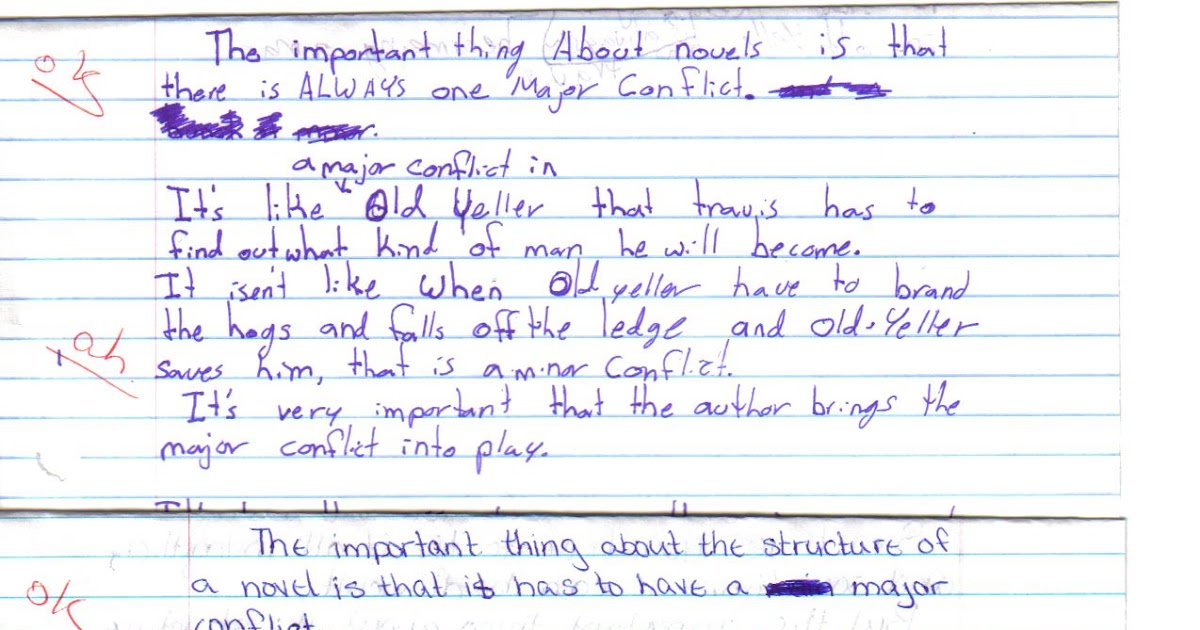 The important thing About novels is that
ok
there is ALWAYS one Major Conflict.
a major conflict in
It's like Old Yeller that travis has to
find out what kind of man he will become.
It isen't like when Old yeller have to brand
the hogs and falls off the ledge and Old Yeller
saves him, that is a minor Conflict.
It's very important that the author brings the
major conflict into play.
The important thing about the structure of
a novel is that it has to have a major
ok
conflict